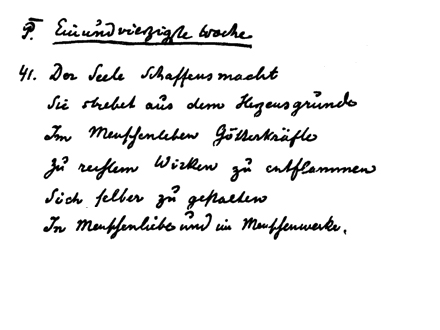 P. Einundvierzigste Woche
41. Der Seele Schaffensmacht
Sie strebet aus dem Herzensgrunde
Im Menschenleben Götterkräfte
Zu rechtem Wirken zu entflammen
Sich selber zu gestalten
In Menschenliebe und im Menschenwerke.